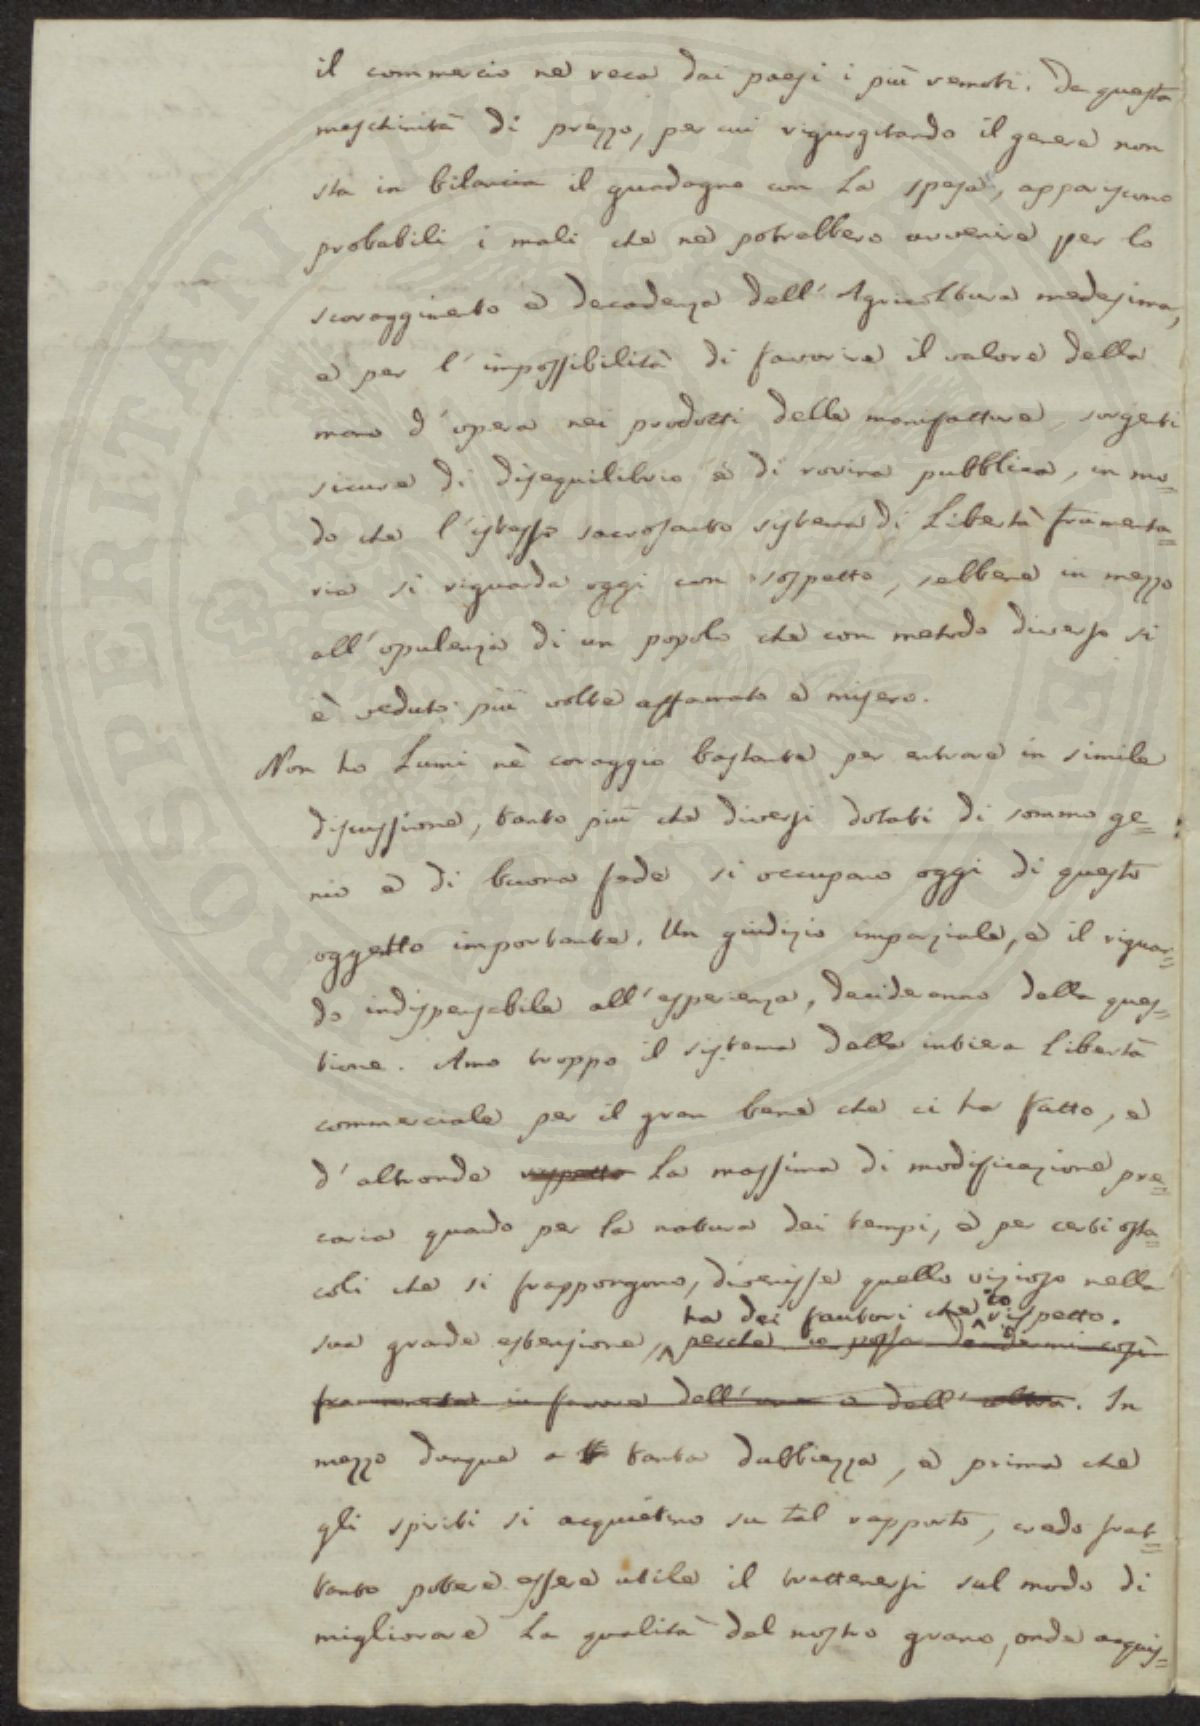 il commercio ne reca dai paesi i più remoti. Da questa
meschinità di prezzo, per cui rigurgitando il genere non
sta in bilancia il guadagno con la spesa, appariscono
probabili i mali che ne potrebbero avvenire per lo
scoraggimento e decadenza dell'Agricoltura medesima,
e per l'impossibilità di favorire il valore della
mano d'opera nei prodotti delle manifatture, sorgenti
sicure di disequilibrio e di rovina pubblica, in mo=
do che l'istesso sacrosanto sistema di Libertà frumenta=
ria si riguarda oggi con sospetto, sebbene in mezzo
all'opulenza di un popolo che con metodo diverso si
è veduto più volte affamato e misero.
Non ho Lumi nè coraggio bastante per entrare in simile
discussione, tanto più che diversi dotati di sommo ge=
nio e di buona fede si occupano oggi di questo
oggetto importante. Un giudizio imparziale, e il riguar=
do indispensabile all'esperienza, decideranno della ques=
tione. Amo troppo il sistema della intiera libertà
commerciale per il gran bene che ci ha fatto, e
d'altronde rispetto la massima di modificazione pre=
caria quando per la natura dei tempi, e per certi osta=
coli che si frappongono, divenisse quello vizioso nella
ha dei fautori che io rispetto.
sua grande estensione, perche io possa decidermi così
francamente in favore dell'una o dell'altra. In
mezzo dunque a tanta dubbiezza, e prima che
gli spiriti si acquietino su tal rapporto, credo frat=
tanto potere essere utile il trattenersi sul modo di
migliorare la qualità del nostro grano, onde acquis=
PROSPERITATI PUBLICAE